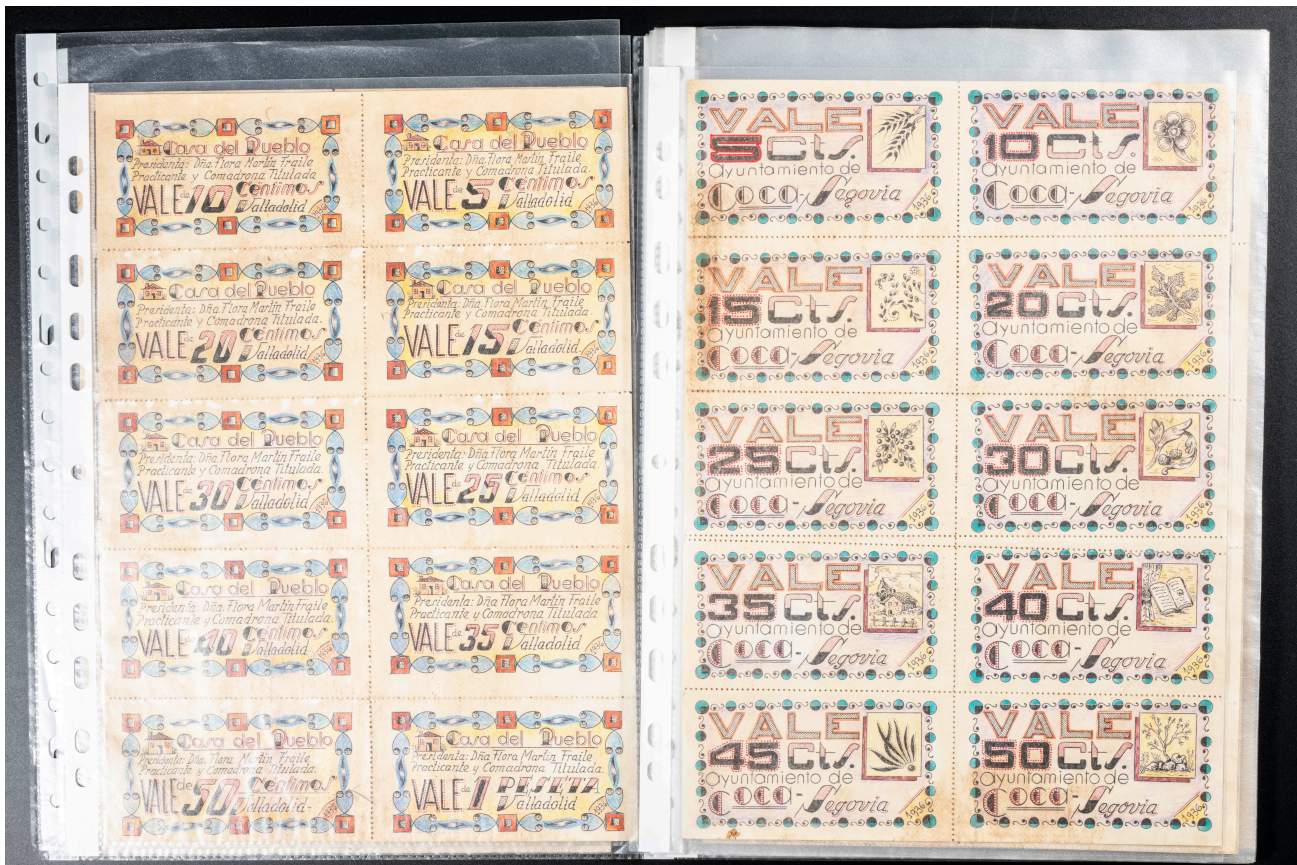 Casa del Pueblo
Presidenta: Dña Flora Martín Fraile
Practicante y Comadrona Titulada.
VALE de 10 Céntimos
Valladolid 1936
Casa del Pueblo
Presidenta: Dña Flora Martín Fraile
Practicante y Comadrona Titulada.
VALE de 5 Céntimos
Valladolid 1936
Casa del Pueblo
Presidenta: Dña Flora Martín Fraile
Practicante y Comadrona Titulada.
VALE de 20 Céntimos
Valladolid 1936
Casa del Pueblo
Presidenta: Dña Flora Martín Fraile
Practicante y Comadrona Titulada.
VALE de 15 Céntimos
Valladolid 1936
Casa del Pueblo
Presidenta: Dña Flora Martín Fraile
Practicante y Comadrona Titulada.
VALE de 30 Céntimos
Valladolid 1936
Casa del Pueblo
Presidenta: Dña Flora Martín Fraile
Practicante y Comadrona Titulada.
VALE de 25 Céntimos
Valladolid 1936
Casa del Pueblo
Presidenta: Dña Flora Martín Fraile
Practicante y Comadrona Titulada.
VALE de 40 Céntimos
Valladolid 1936
Casa del Pueblo
Presidenta: Dña Flora Martín Fraile
Practicante y Comadrona Titulada.
VALE de 35 Céntimos
Valladolid 1936
Casa del Pueblo
Presidenta: Dña. Flora Martín Fraile
Practicante y Comadrona Titulada.
VALE de 50 Céntimos
Valladolid- 1936
Casa del Pueblo
Presidenta: Dña Flora Martín Fraile
Practicante y Comadrona Titulada.
VALE de 1 PESETA
Valladolid 1936
VALE
5 Cts.
ayuntamiento de
Coca-Segovia
1936
VALE
10 Cts.
ayuntamiento de
Coca-Segovia
1936
VALE
15 Cts.
ayuntamiento de
Coca-Segovia
1936
VALE
20 Cts.
ayuntamiento de
Coca-Segovia
1936
VALE
25 Cts.
ayuntamiento de
Coca-Segovia
1936
VALE
30 Cts.
ayuntamiento de
Coca-Segovia
1936
VALE
35 Cts.
ayuntamiento de
Coca-Segovia
1936
VALE
40 Cts.
ayuntamiento de
Coca-Segovia
1936
VALE
45 Cts.
ayuntamiento de
Coca-Segovia
1936
VALE
50 Cts.
ayuntamiento de
Coca-Segovia
1936